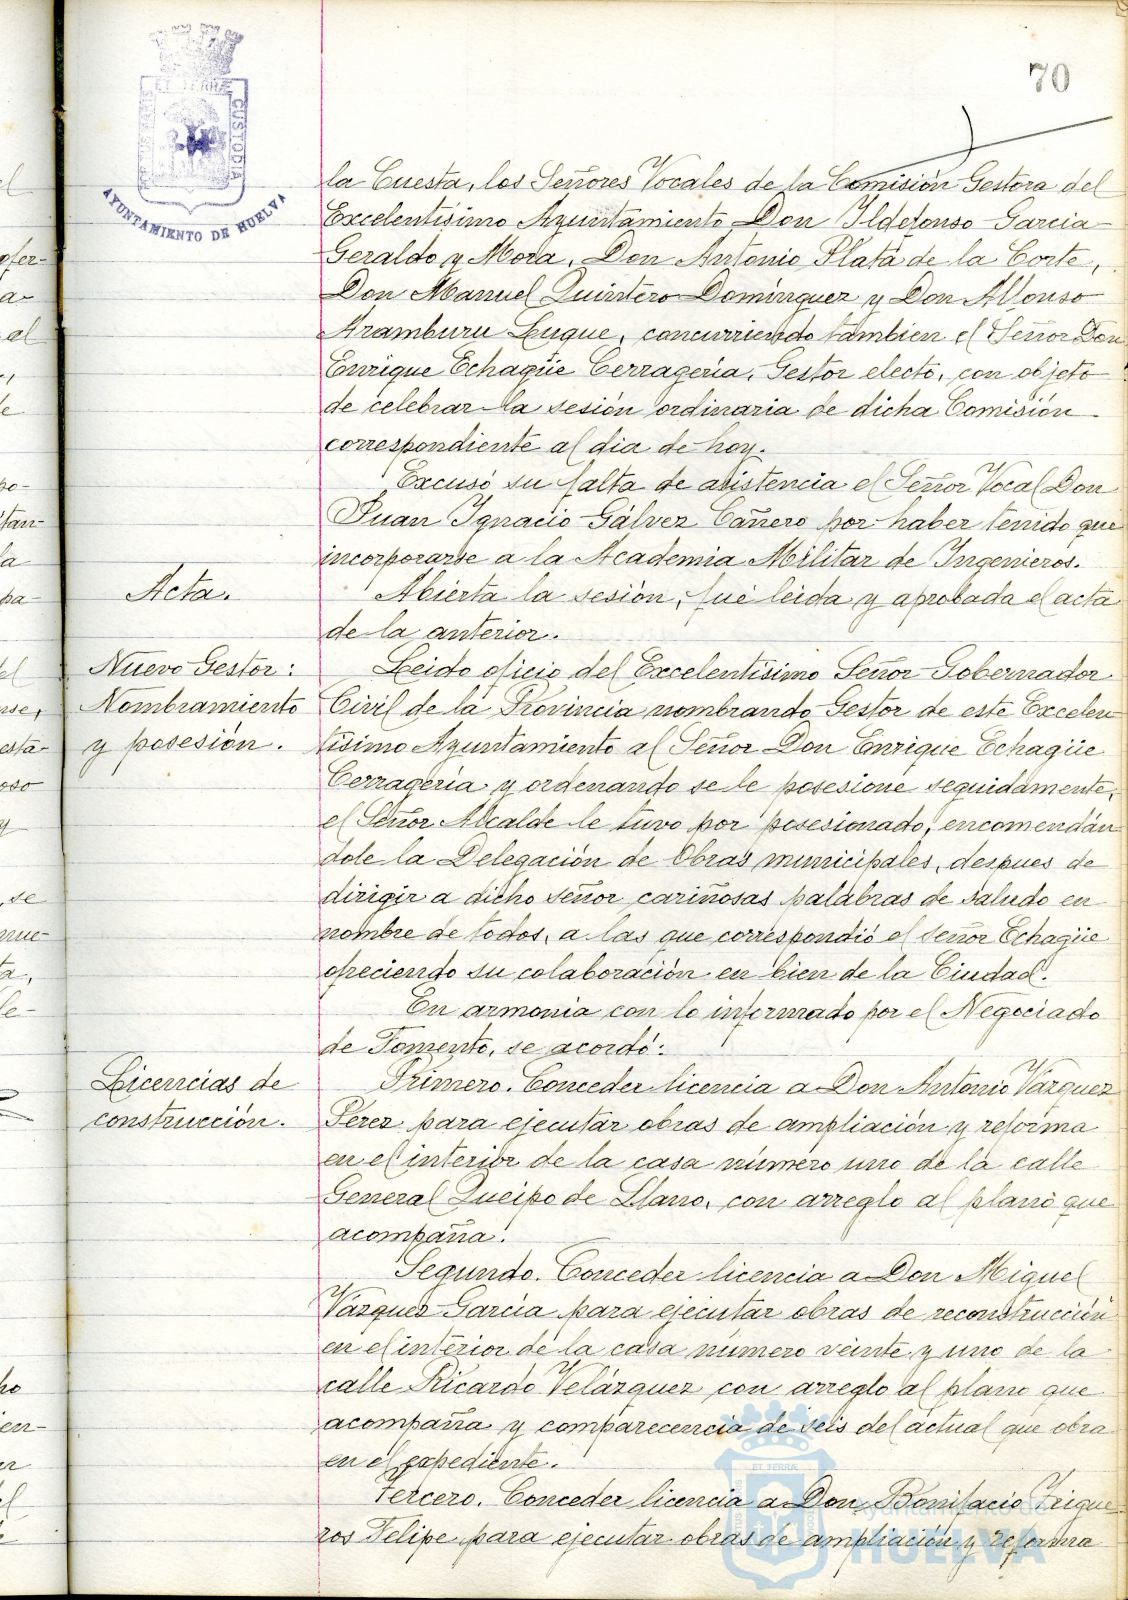 70
ET TERRÆ
CUSTODIA
AYUNTAMIENTO DE HUELVA
la Cuesta, los Señores Vocales de la Comisión Gestora del
Excelentísimo Ayuntamiento Don Ildefonso Garcia
Geraldo y Mora, Don Antonio Plata de la Corte,
Don Manuel Quintero Domínguez y Don Alfonso
Aramburu Luque, concurriendo tambien el Señor Don
Enrique Echagüe Cerragería, Gestor electo, con objeto
de celebrar la sesión ordinaria de dicha Comisión
correspondiente al dia de hoy.
Excusó su falta de asistencia el Señor Vocal Don
Juan Ignacio Gálvez Cañero por haber tenido que
incorporarse a la Academia Militar de Ingenieros.
Acta.
Abierta la sesión, fué leida y aprobada el acta
de la anterior.
Nuevo Gestor:
Nombramiento
y posesión.
Leido oficio del Excelentísimo Señor Gobernador
Civil de la Provincia nombrando Gestor de este Excelen
tísimo Ayuntamiento al Señor Don Enrique Echagüe
Cerragería y ordenando se le posesione seguidamente,
el Señor Alcalde le tuvo por posesionado, encomendán
dole la Delegación de Obras municipales, despues de
dirigir a dicho señor cariñosas palabras de saludo en
nombre de todos, a las que correspondió el señor Echagüe
ofreciendo su colaboración en bien de la Ciudad.
En armonia con lo informado por el Negociado
de Fomento, se acordó:
Licencias de
construcción.
Primero. Conceder licencia a Don Antonio Vázquez
Pérez para ejecutar obras de ampliación y reforma
en el interior de la casa número uno de la calle
General Queipo de Llano, con arreglo al plano que
acompaña.
Segundo. Conceder licencia a Don Miguel
Vázquez García para ejecutar obras de reconstrucción
en el interior de la casa número veinte y uno de la
calle Ricardo Velázquez, con arreglo al plano que
acompaña y comparecencia de seis del actual que obra
en el expediente.
Tercero. Conceder licencia a Don Bonifacio Trigue
ros Felipe para ejecutar obras de ampliación y reforma
Ayuntamiento de
HUELVA